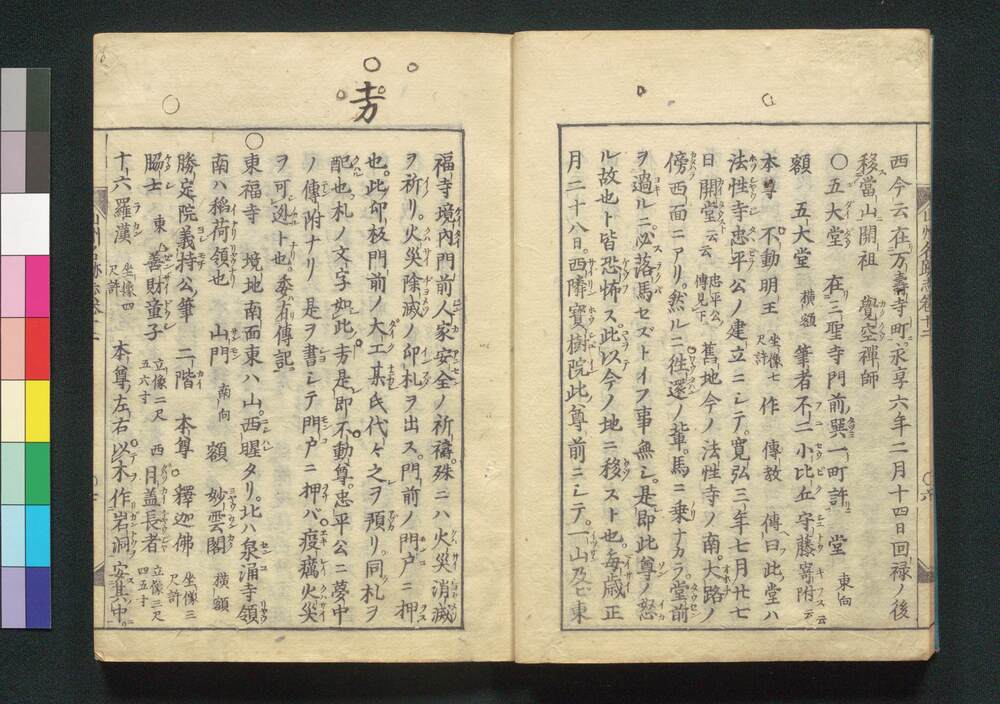 西今云在万壽寺町永享六年二月十四日回禄ノ後
移當山開祖 覺空禪師
○五大堂 在三聖寺門前巽一町許 堂 東向
額 五大堂 横額 筆者不二小比丘守藤寄附云云
本尊 不動明王 坐像七尺許 作 傳教 傳曰此堂ハ
法性寺忠平公ノ建立ニシテ寛弘三年七月廿七
日開堂云云 忠平公傳見下 舊地今ノ法性寺ノ南大路ノ
傍西面ニアリ然ルニ徃還ノ輩馬ニ乗ナカラ堂前
ヲ過ルニ必落馬セズトイフ事無シ是即此尊ノ怒
ル故也ト皆恐怖ス此以今ノ地ニ移スト也毎歳正
月二十八日西隣寳樹院此尊前ニシテ一山及ヒ東
福寺境内門前人家安全ノ祈禱殊ニハ火災消滅
ヲ祈リ火災除滅ノ印札ヲ出ス門前ノ門戸ニ押
也此印板門前ノ大工某氏代々之ヲ預リ同札ヲ
配也札ノ文字如此𠫤是即不動尊忠平公ニ夢中
ノ傳附ナリ 是ヲ書シテ門戸ニ押バ疫癘火災
ヲ可迯ト也委有傳記
○東福寺 境地南面東ハ山西畷タリ北ハ泉涌寺領
南ハ稻荷領也 山門 南向 額 妙雲閣 横額
勝定院義持公筆 二階 本尊 釋迦佛 坐像三尺許
脇士 東 善財童子 立像二尺五六寸 西 月盖長者 立像三尺四五寸
十六羅漢 坐像四尺許 本尊左右以木作岩洞安其中